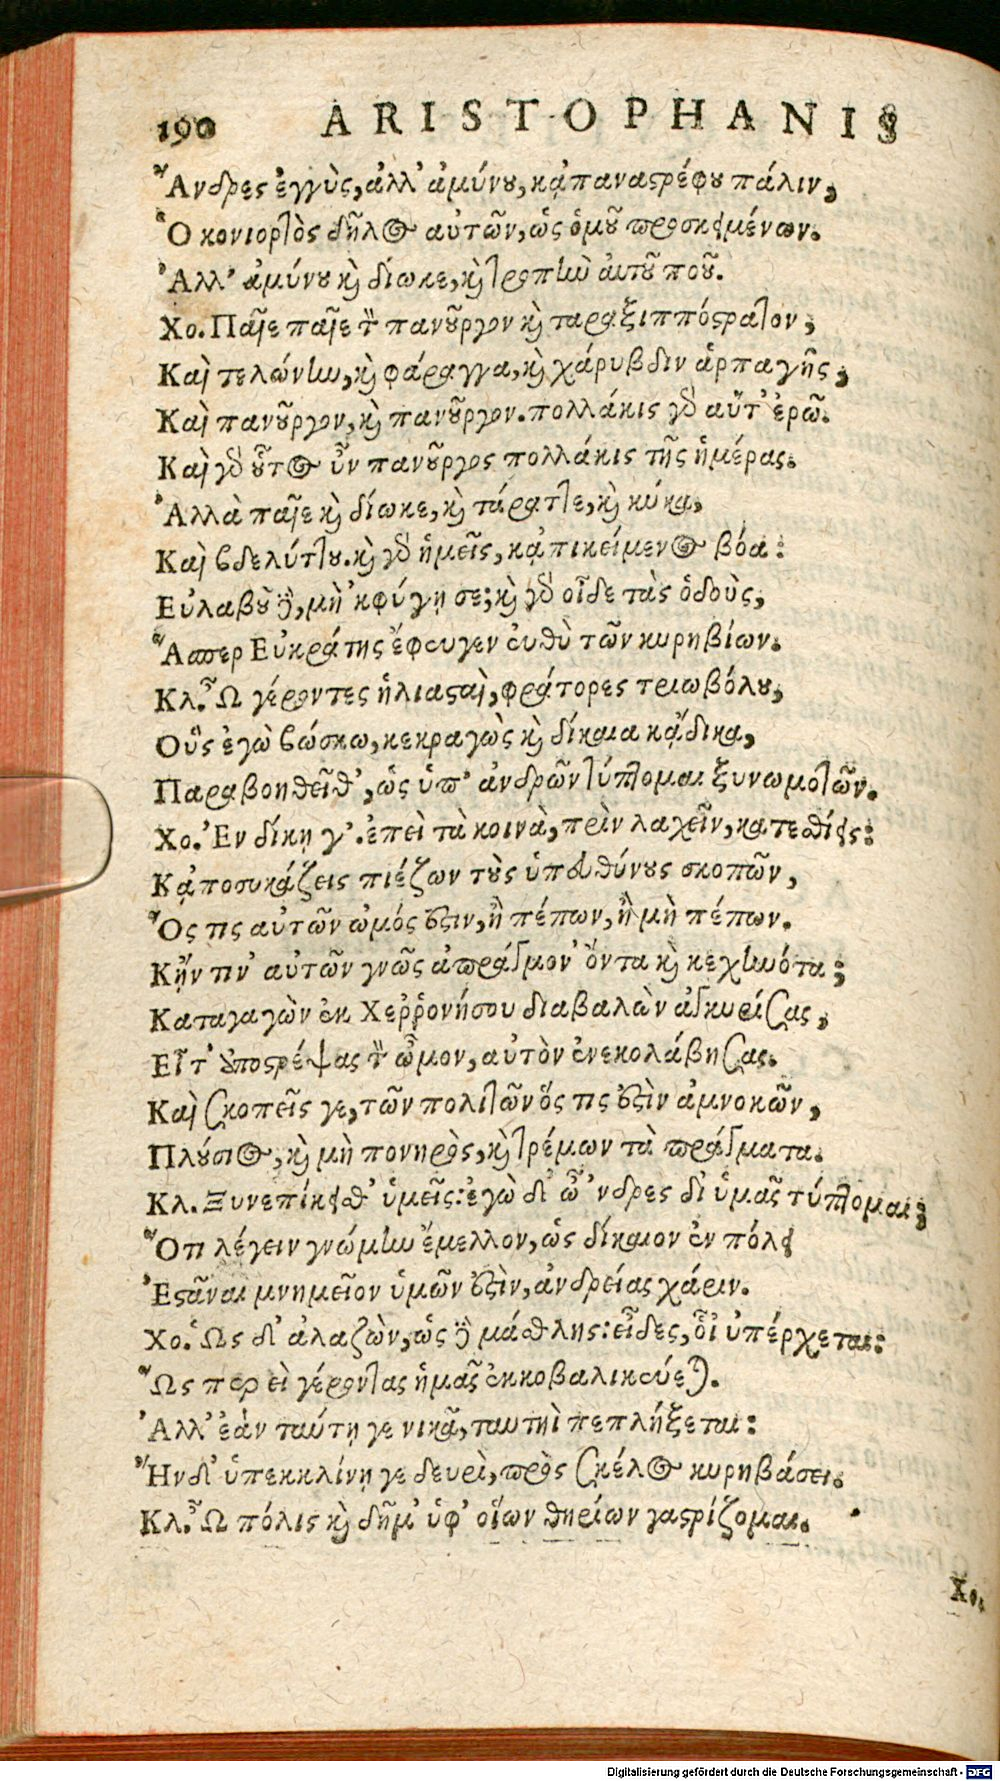 190 ARISTOPHANIS
Ἄνδρες ἐγγὺς, ἀλλ' ἀμύνου, κᾀπαναστρέφου πάλιν,
Ὁ κονιορτὸς δῆλος αὐτῶν, ὡς ὁμοῦ προσκειμένων.
Ἀλλ' ἀμύνου καὶ δίωκε, καὶ τροπὴν αὐτοῦ ποῦ.
Χο. Παῖε παῖε τὸν πανοῦργον καὶ ταραξιππόστρατον,
Καὶ τελώνην, καὶ φάραγγα, καὶ χάρυβδιν ἁρπαγῆς,
Καὶ πανοῦργον, καὶ πανοῦργον. πολλάκις γὰρ αὔτ' ἐρῶ.
Καὶ γὰρ οὗτος ἦν πανοῦργος πολλάκις τῆς ἡμέρας.
Ἀλλὰ παῖε καὶ δίωκε, καὶ τάραττε, καὶ κύκα,
Καὶ βδελύττου. καὶ γὰρ ἡμεῖς, κᾀπικείμενος βόα:
Εὐλαβοῦ δὲ, μὴ 'κφύγῃ σε; καὶ γὰρ οἶδε τὰς ὁδοὺς,
Ἅσπερ Εὐκράτης ἔφευγεν εὐθὺ τῶν κυρηβίων.
Κλ. Ὦ γέροντες ἡλιασταὶ, φράτορες τριωβόλου,
Οὓς ἐγὼ βώσκω, κεκραγὼς καὶ δίκαια κᾄδικα,
Παραβοηθεῖθ', ὡς ὑπ' ἀνδρῶν τύπτομαι ξυνωμοτῶν.
Χο. Ἐν δίκῃ γ'. ἐπεὶ τὰ κοινὰ, πρὶν λαχεῖν, κατεσθίεις:
Κᾀποσυκάζεις πιέζων τοὺς ὑπευθύνους σκοπῶν,
Ὅς τις αὐτῶν ὠμός ἐστιν, ἢ πέπων, ἢ μὴ πέπων.
Κᾔν τιν' αὐτῶν γνῶς ἀπράγμον' ὄντα καὶ κεχηνότα;
Καταγαγὼν ἐκ Χεῤῥονήσου διαβαλὼν ἀγκυρίσας,
Εἶτ' ἀποστρέψας τὸν ὦμον, αὐτὸν ἐνεκολάβησας.
Καὶ σκοπεῖς γε, τῶν πολιτῶν ὅς τις ἐστὶν ἀμνοκῶν,
Πλούσιος, καὶ μὴ πονηρὸς, καὶ τρέμων τὰ πράγματα.
Κλ. Ξυνεπίκεισθ' ὑμεῖς: ἐγὼ δ' ὦ 'νδρες δι' ὑμᾶς τύπτομαι;
Ὅτι λέγειν γνώμην ἔμελλον, ὡς δίκαιον ἐν πόλει
Ἑστᾶναι μνημεῖον ὑμῶν ἐστὶν, ἀνδρείας χάριν.
Χο. Ὡς δ' ἀλαζὼν, ὡς δὲ μάσθλης: εἶδες, οἷ ὑπέρχεται:
Ὥς περεὶ γέροντας ἡμᾶς ἐκκοβαλικεύεται.
Ἀλλ' ἐὰν ταύτῃ γε νικᾷ, ταυτηὶ πεπλήξεται:
Ἢν δ' ὑπεκκλίνῃ γε δευρὶ, πρὸς σκέλος κυρηβάσει.
Κλ. Ὦ πόλις καὶ δῆμ' ὑφ' οἵων θηρίων γαστρίζομαι.
Χο.
Digitalisierung gefördert durch die Deutsche Forschungsgemeinschaft - DFG